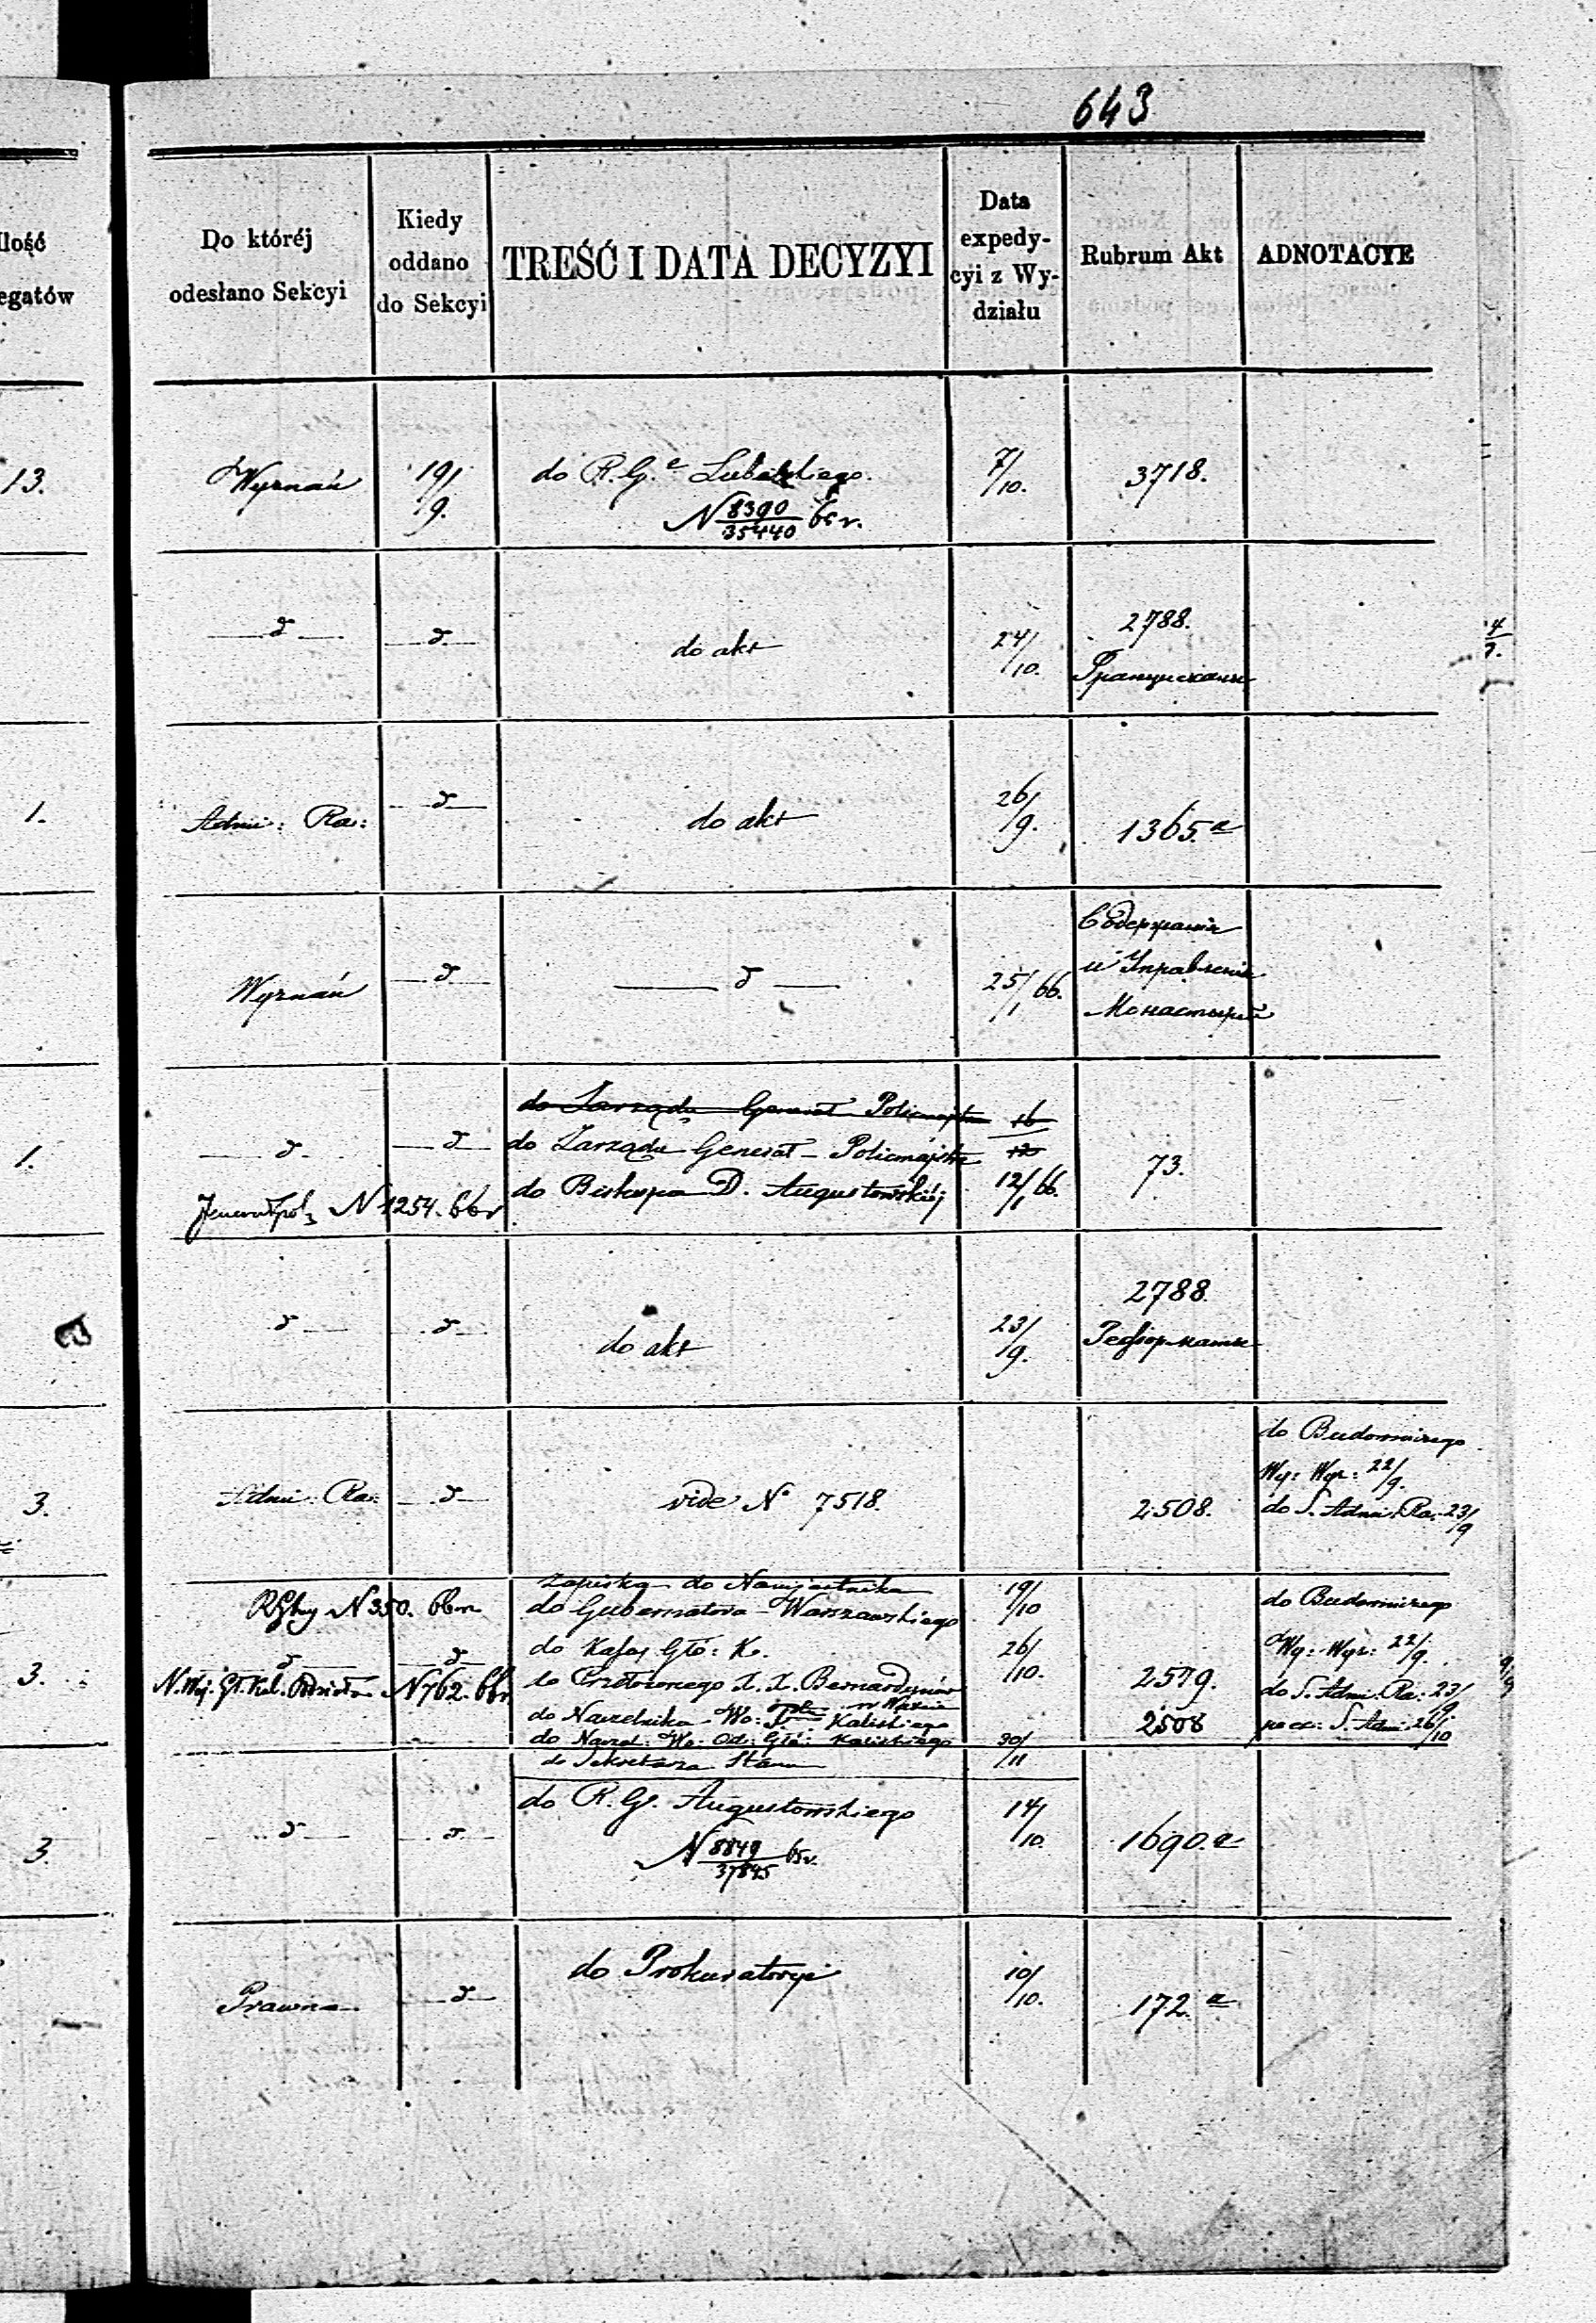 643
Ilość
egatów
Do któréj
odesłano Sekcyi
Kiedy
oddano
do Sekcyi
TREŚĆ I DATA DECYZYI
Data
expedy-
cyi z Wy-
działu
Rubrum Akt
ADNOTACYE
13.
Wyznań
19/9.
do R. G. Lubelskiego.
N 8390/35440 65 r.
7/10.
3718.
d
d
do akt
24/10.
2788.
Францискане
1.
Admi: Ra:
d
do akt
26/9.
1365.a
Wyznań
d
d
25/1 66.
Содержание
и Управление
Монастырей
1.
do Zarządu Generał Policmajstra
16/12
d
d
do Zarządu Generał-Policmajstra
do Biskupa D. Augustowskiéj
12/1 66.
73.
N 1254. 66 r
d
d
do akt
23/9.
2788.
Реформаты
3.
Admi: Ra:
d
vide No 7518.
2508.
do Budowniczego
Wy: Wyz: 22/9.
do S. Admi: Ra: 23/9
3.
N 350. 66 r.
d
d
N 762. 66 r.
Zapiska do Namiestnika
do Gubernatora Warszawskiego
do Kasy Głó: K.
do Przełożonego X. X. Bernardynów
w Warcie
do Naczelnika Wo: Kaliskiego
do Naczel: Wo: Od: Głó: Kaliskiego
do Sekretarza Stanu
19/10
26/10.
30/11
2579.
2508
do Budowniczego
Wy: Wyz: 22/9.
do S. Admi: Ra: 23/9
S. Adm: 26/10
3.
d
d
do R. G. Augustowskiego
N 8849/37845 65 r.
14/10.
1690.a
Prawna
d
do Prokuratoryi
10/10.
172.a